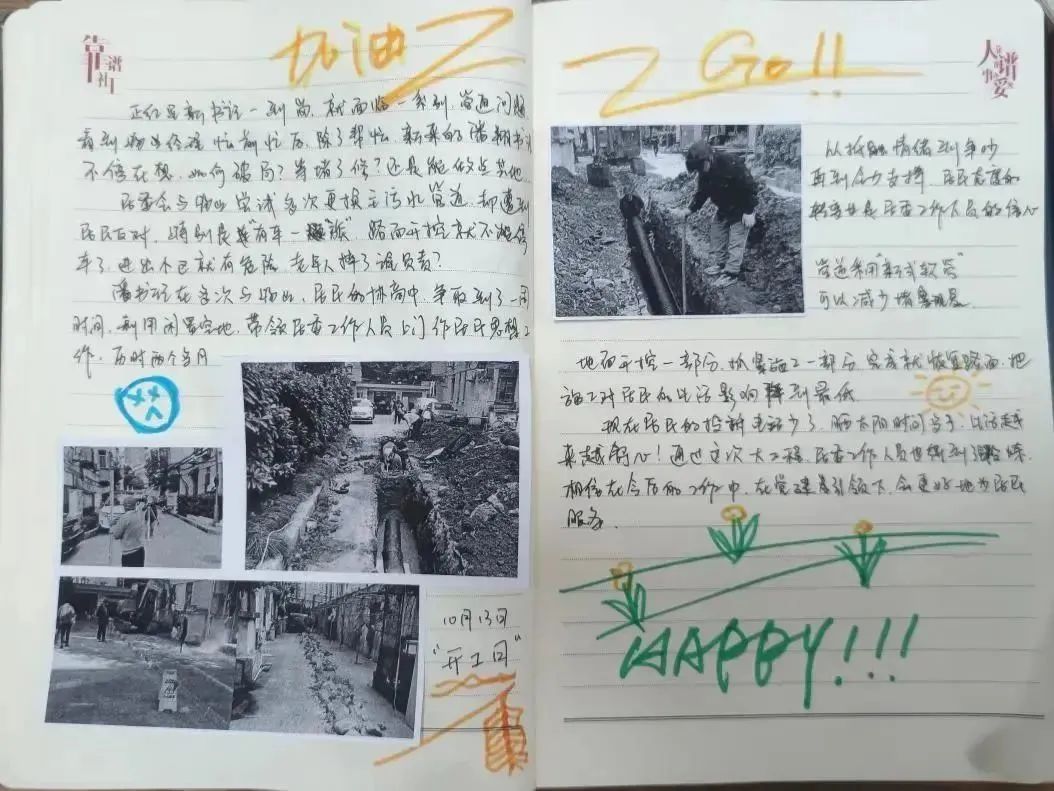 靠谱社工
加油
正红居新书记一到岗，就面临一系列管道问题
看到物业经理忙前忙后，除了帮忙，新来的潘 书记
不停在想，如何破局？等堵了修？还是能做点其他
居委会与物业尝试多次更换主污水管道，却遭到
居民反对，特别是"有车一族"，路面开挖就不能停
车了，进出不已就有危险，老年人摔了谁负责？
潘书记在多次与物业、居民的协商中，争取到了一周
时间，利用闲置空地，带领居委工作人员上门作居民思想工
作，历时两个多月
10月13日
"开工日"
Go!!
人民的事 谱爱
从抵触情绪到争吵
再到全力支持，居民态度的
转变也是居委工作人员的信心
管道采用"新式软管"
可以减少堵塞现象
地面开挖一部分，抓紧施工一部分，完成就恢复路面，把
施工对居民的生活影响降到最低
现在居民的投诉电话少了，晒太阳时间多了，生活越
来越舒心！通过这次大工程，居委工作人员也得到
相信在今后的工作中，在党建引领下，会更好地为居民
服务。
HAPPY!!!